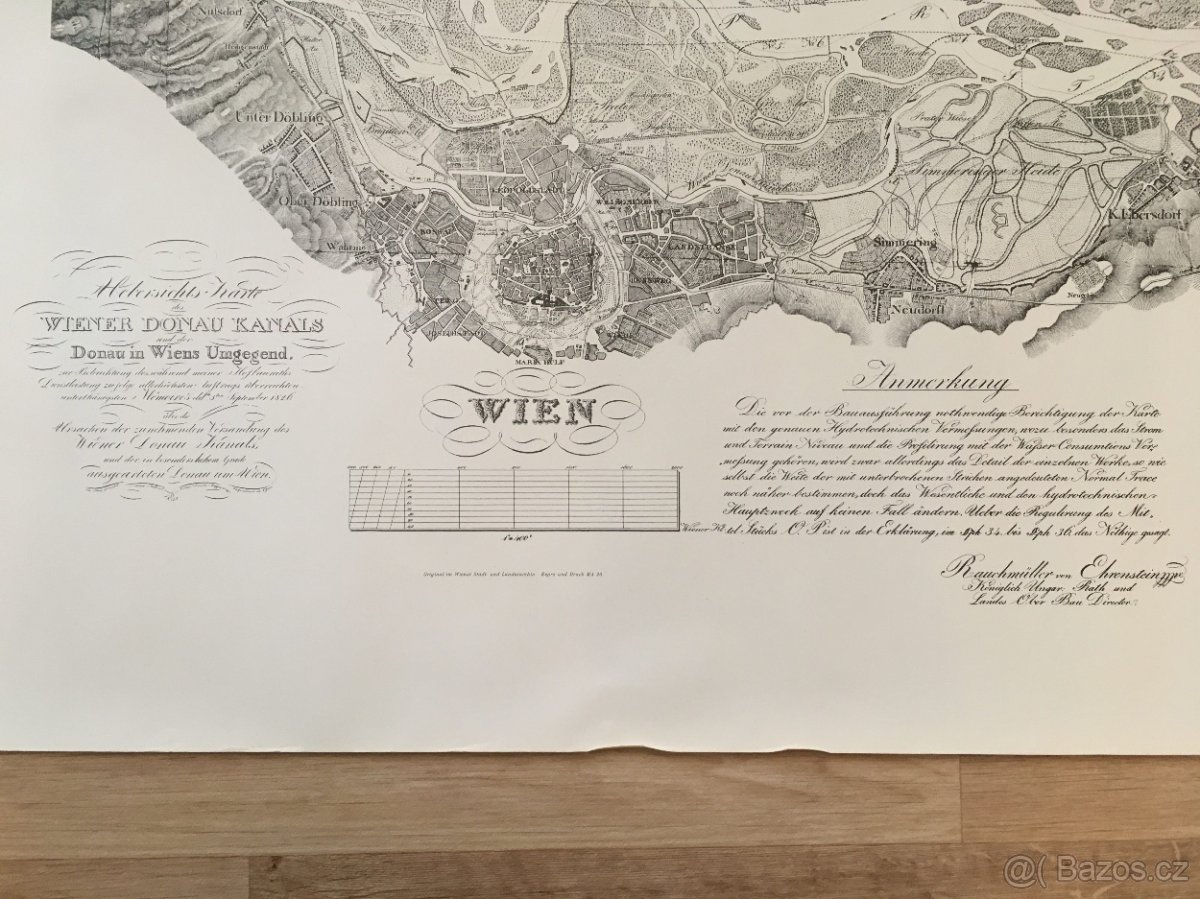 Nusdorf
Unter Döbling
Ober Döbling
Prater
LEOPOLDSTADT
ROSSAU
LANDSTRASSE
RENNWEG
JOSEPHSTADT
MARIA HÜLF
Simmeringer Heide
Simmering
K. Ebersdorf
Neudorff
Uebersichts-Karte
des
WIENER DONAU KANALS
und der
Donau in Wiens Umgegend,
zur Beleuchtung des während meiner Hofbauraths
Dienstleistung zufolge allerhöchsten Auftrags überreichten
unterthänigsten Memoire's ddto 5ten September 1826
über die
Ursachen der zunehmenden Versandung des
Wiener Donau Kanals,
und der in besonders hohem Grade
ausgearteten Donau um Wien.
WIEN
1"=400°
Wiener Kl.
Original im Wiener Stadt- und Landesarchiv
Anmerkung
Die vor der Bauausführung nothwendige Berichtigung der Karte
mit den genauen Hydrotechnischen Vermessungen, wozu besonders das Strom
und Terrain-Niveau und die Profilirung mit der Wasser Consumtions Ver-
messung gehören, wird zwar allerdings das Detail der einzelnen Werke, so wie
selbst die Weite der mit unterbrochenen Strichen angedeuteten Normal Trace
noch näher bestimmen, doch das Wesentliche und den hydrotechnischen
Hauptzweck auf keinen Fall ändern. Ueber die Regulirung des Mit.
tel Stücks O. P ist in der Erklärung, im §ph 34. bis §ph 36. das Nöthige gesagt.
Rauchmüller von Ehrenstein
Königlich Ungar. Rath und
Landes Ober Bau Director.
@( Bazos.cz